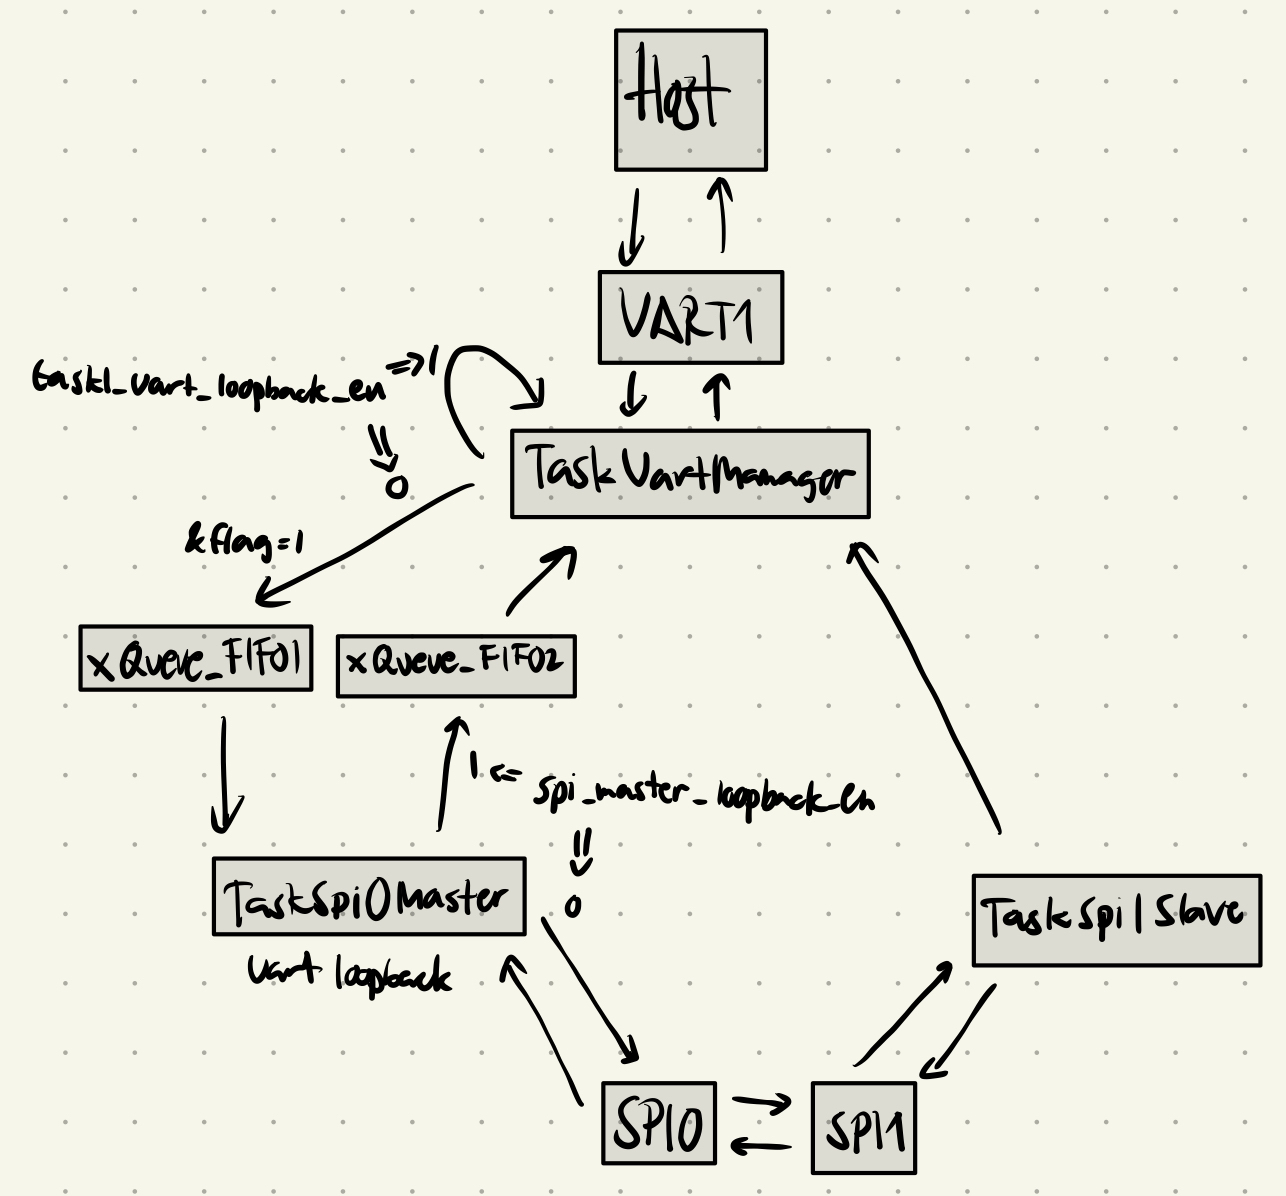 Host
UART1
task1_uart_loopback_en => 1
=> 0
TaskUartManager
&flag=1
xQueue_FIFO1
xQueue_FIFO2
1 <= spi_master_loopback_en
=> 0
TaskSpi0Master
TaskSpi1Slave
uart loopback
SPI0
SPI1